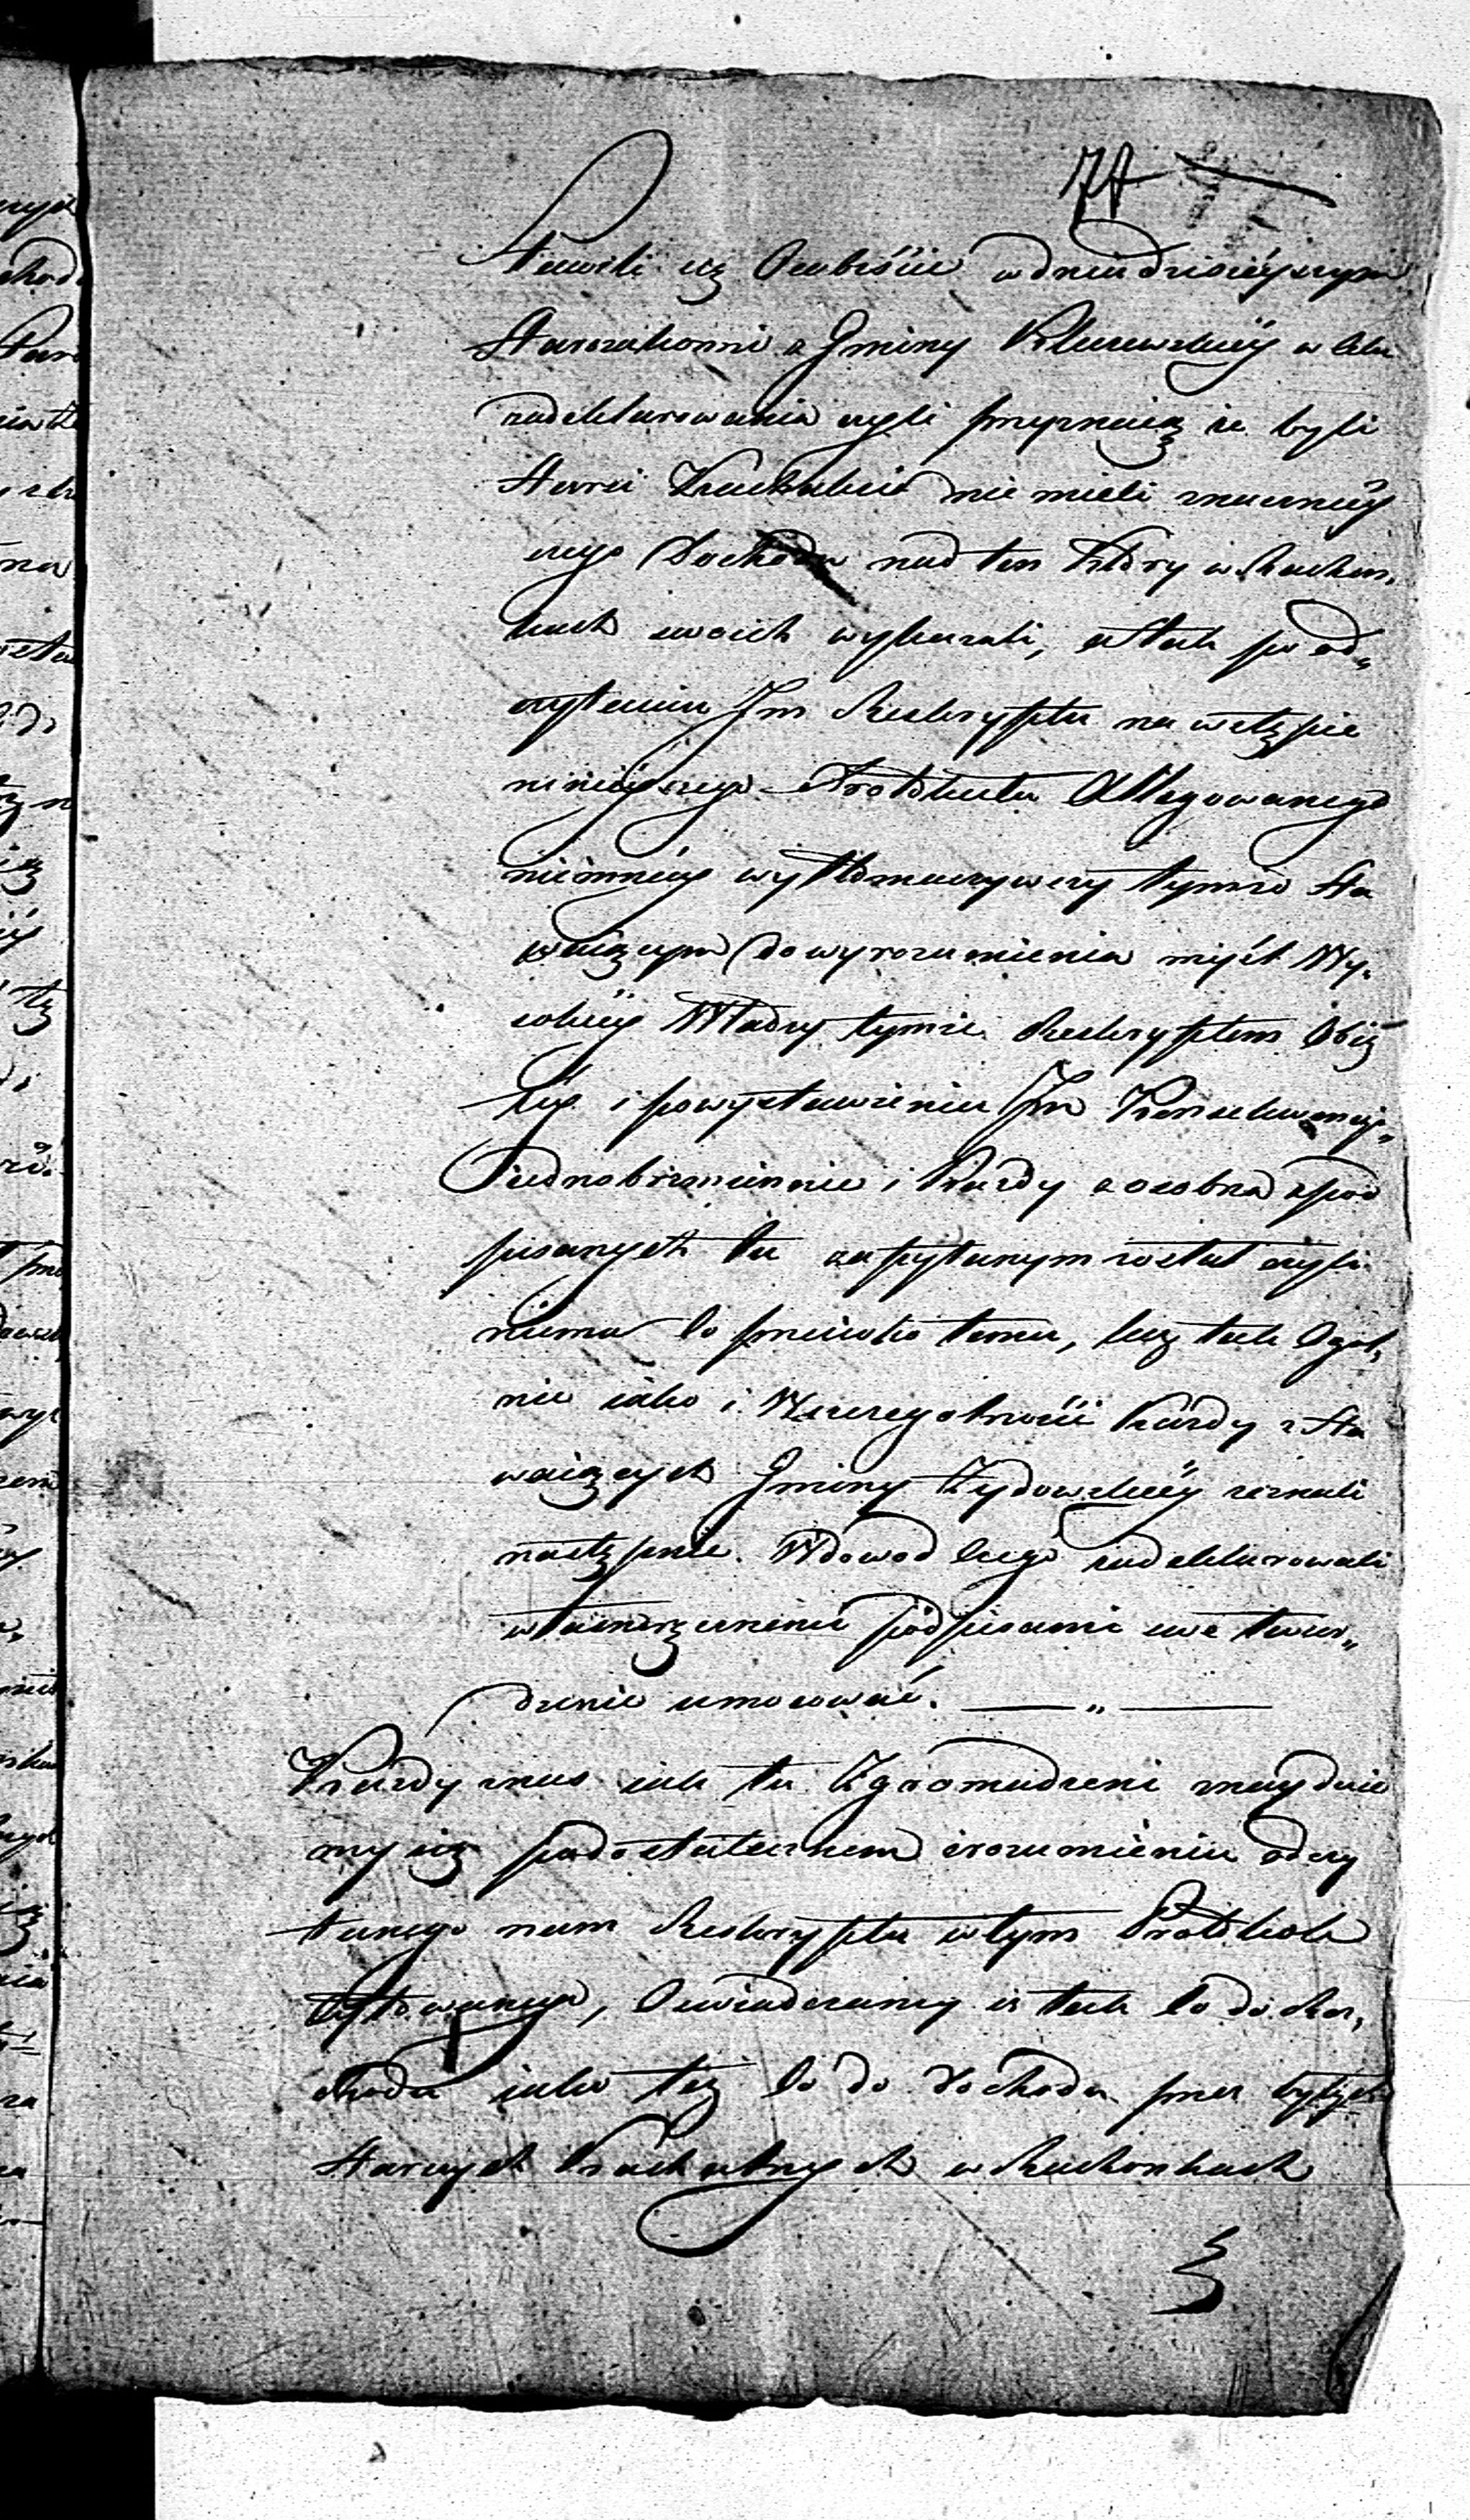 74
Stawili się Osobiście w dniu dzisieyszym
Starozakonni z Gminy w celu
zadeklarowania czyli przyznaią że byli
Starsi Kachalnie nie mieli znaczniey
szego Dochodu nad ten który w Rachun,
kach swoich wykazali, a tak po od„
czytaniu Im Reskryptu na wstępie
ninieyszego Protokułu Allegowanego
niemniey wytłomaczywszy tymże Sta
waiącym do wyrozumienia myśl Wy„
sokiey Władzy tymże Reskryptem Obię
tey i powystawieniu Im Konsekwencyi„
Jednobrzmiennie i Każdy z osobna z pod
pisanych tu zapytanym został czyli
niema co przeciwko temu, lecz tak Ogól,
nie iako i W szczegolności Każdy z Sta
waiących Gminy Żydowskiey zeznali
następnie. W dowod czego zadeklarowali
własnoręcznemi podpisami swe twier„
dzenie umocować. — „ —
Każdy z nas iak tu Zgromadzeni znayduie
my się po dostatecznem zrozumieniu odczy
tanego nam Reskryptu w tym Protokole
Cytowanego, Oswiadczamy iż tak co do Roz,
chodu iako też co do Dochodu przez byłych
Starszych Kachalnych w Rachonkach